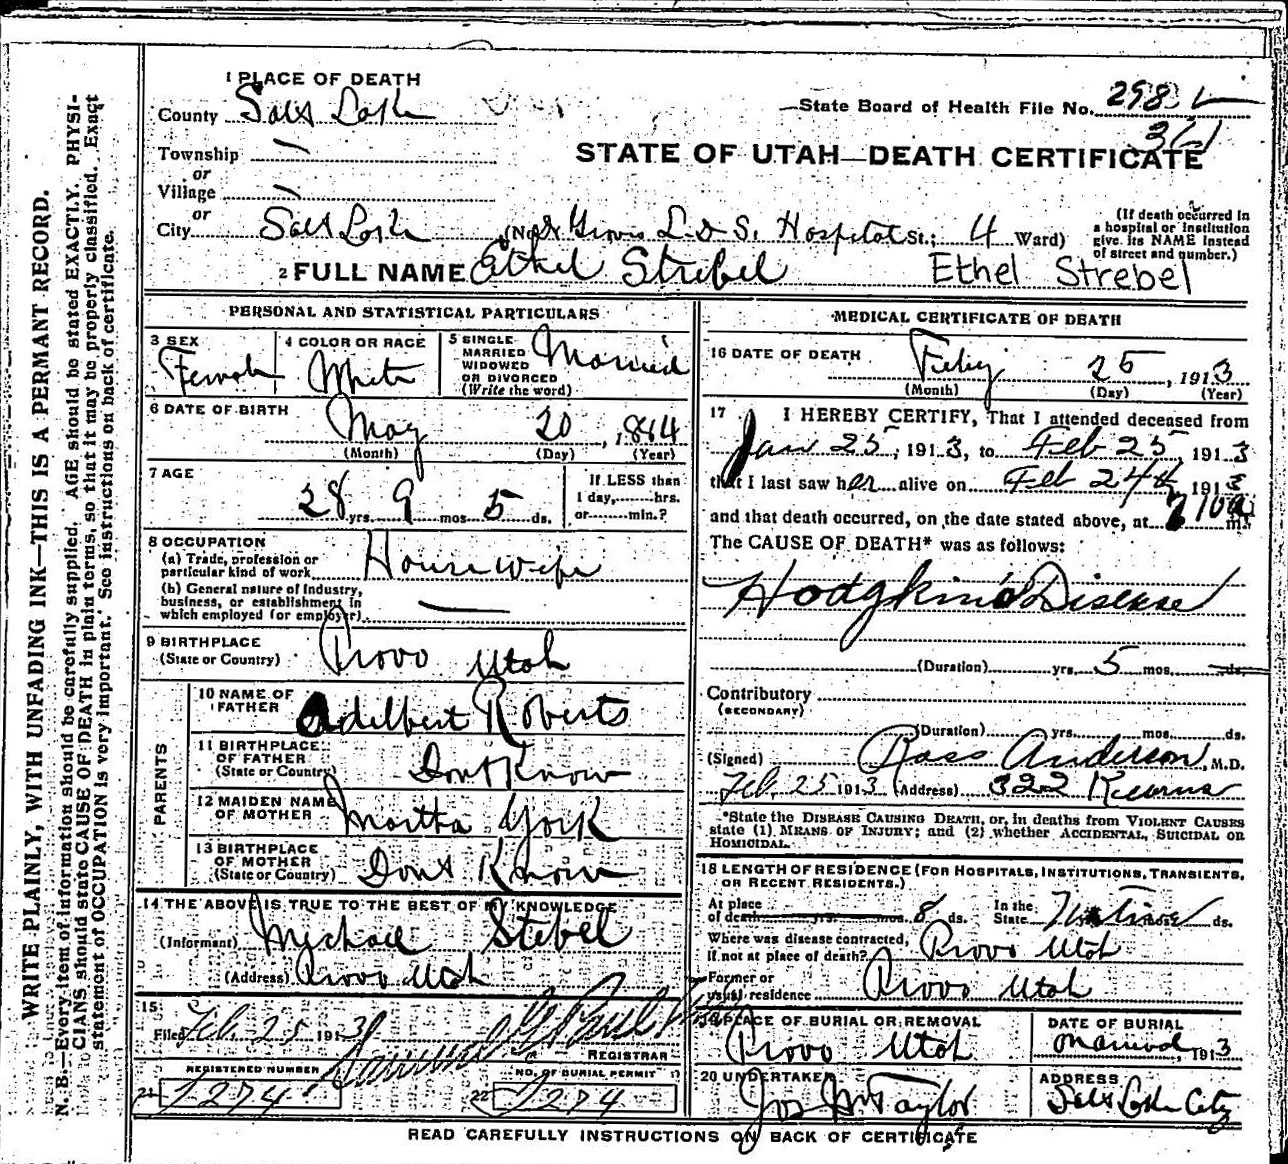 WRITE PLAINLY, WITH UNFADING INK—THIS IS A PERMANT RECORD.
N. B.—Every item of information should be carefully supplied. AGE should be stated EXACTLY. PHYSI-
CIANS should state CAUSE OF DEATH in plain terms, so that it may be properly classified. Exact
statement of OCCUPATION is very important. See instructions on back of certificate.
1 PLACE OF DEATH
County Salt Lake
State Board of Health File No. 298
STATE OF UTAH—DEATH CERTIFICATE
Township —
or
Village —
or
City Salt Lake (No. Groves L.D.S. Hospital St.; 4 Ward)
(If death occurred in
a hospital or institution
give its NAME instead
of street and number.)
2 FULL NAME Ethel Strebel Ethel Strebel
PERSONAL AND STATISTICAL PARTICULARS
3 SEX Female
4 COLOR OR RACE White
5 SINGLE
MARRIED
WIDOWED
OR DIVORCED
(Write the word) Married
6 DATE OF BIRTH May 20, 1884
(Month) (Day) (Year)
7 AGE 28 yrs. 9 mos. 5 ds.
If LESS than
1 day,........hrs.
or........min.?
8 OCCUPATION
(a) Trade, profession or
particular kind of work Housewife
(b) General nature of Industry,
business, or establishment in
which employed (or employer) —
9 BIRTHPLACE
(State or Country) Provo Utah
PARENTS
10 NAME OF
FATHER Adelbert Roberts
11 BIRTHPLACE
OF FATHER
(State or Country) Dont Know
12 MAIDEN NAME
OF MOTHER Martha York
13 BIRTHPLACE
OF MOTHER
(State or Country) Dont Know
14 THE ABOVE IS TRUE TO THE BEST OF MY KNOWLEDGE
(Informant) Michael Stebel
(Address) Provo Utah
15
Filed Feb. 25 1913
REGISTRAR
REGISTERED NUMBER
NO. OF BURIAL PERMIT
21 274
22 274
MEDICAL CERTIFICATE OF DEATH
16 DATE OF DEATH Feby 25, 1913
(Month) (Day) (Year)
17 I HEREBY CERTIFY, That I attended deceased from
Jan 25, 1913, to Feb 25, 1913
that I last saw her alive on Feb 24th 1913
and that death occurred, on the date stated above, at 710a m.
The CAUSE OF DEATH* was as follows:
Hodgkin's Disease
(Duration) yrs. 5 mos. ds.
Contributory
(SECONDARY)
(Duration) yrs. mos. ds.
(Signed) Ross Anderson, M.D.
Feb. 25 1913 (Address) 322 Kearns
*State the DISEASE CAUSING DEATH, or, in deaths from VIOLENT CAUSES
state (1) MEANS OF INJURY; and (2) whether ACCIDENTAL, SUICIDAL OR
HOMICIDAL.
18 LENGTH OF RESIDENCE (FOR HOSPITALS, INSTITUTIONS, TRANSIENTS,
OR RECENT RESIDENTS.)
At place
of death yrs. mos. 8 ds.
In the
State ds.
Where was disease contracted,
If not at place of death? Provo Utah
Former or
usual residence Provo Utah
19 PLACE OF BURIAL OR REMOVAL
Provo Utah
DATE OF BURIAL
1913
20 UNDERTAKER
Jos Wm Taylor
ADDRESS
Salt Lake City
READ CAREFULLY INSTRUCTIONS ON BACK OF CERTIFICATE